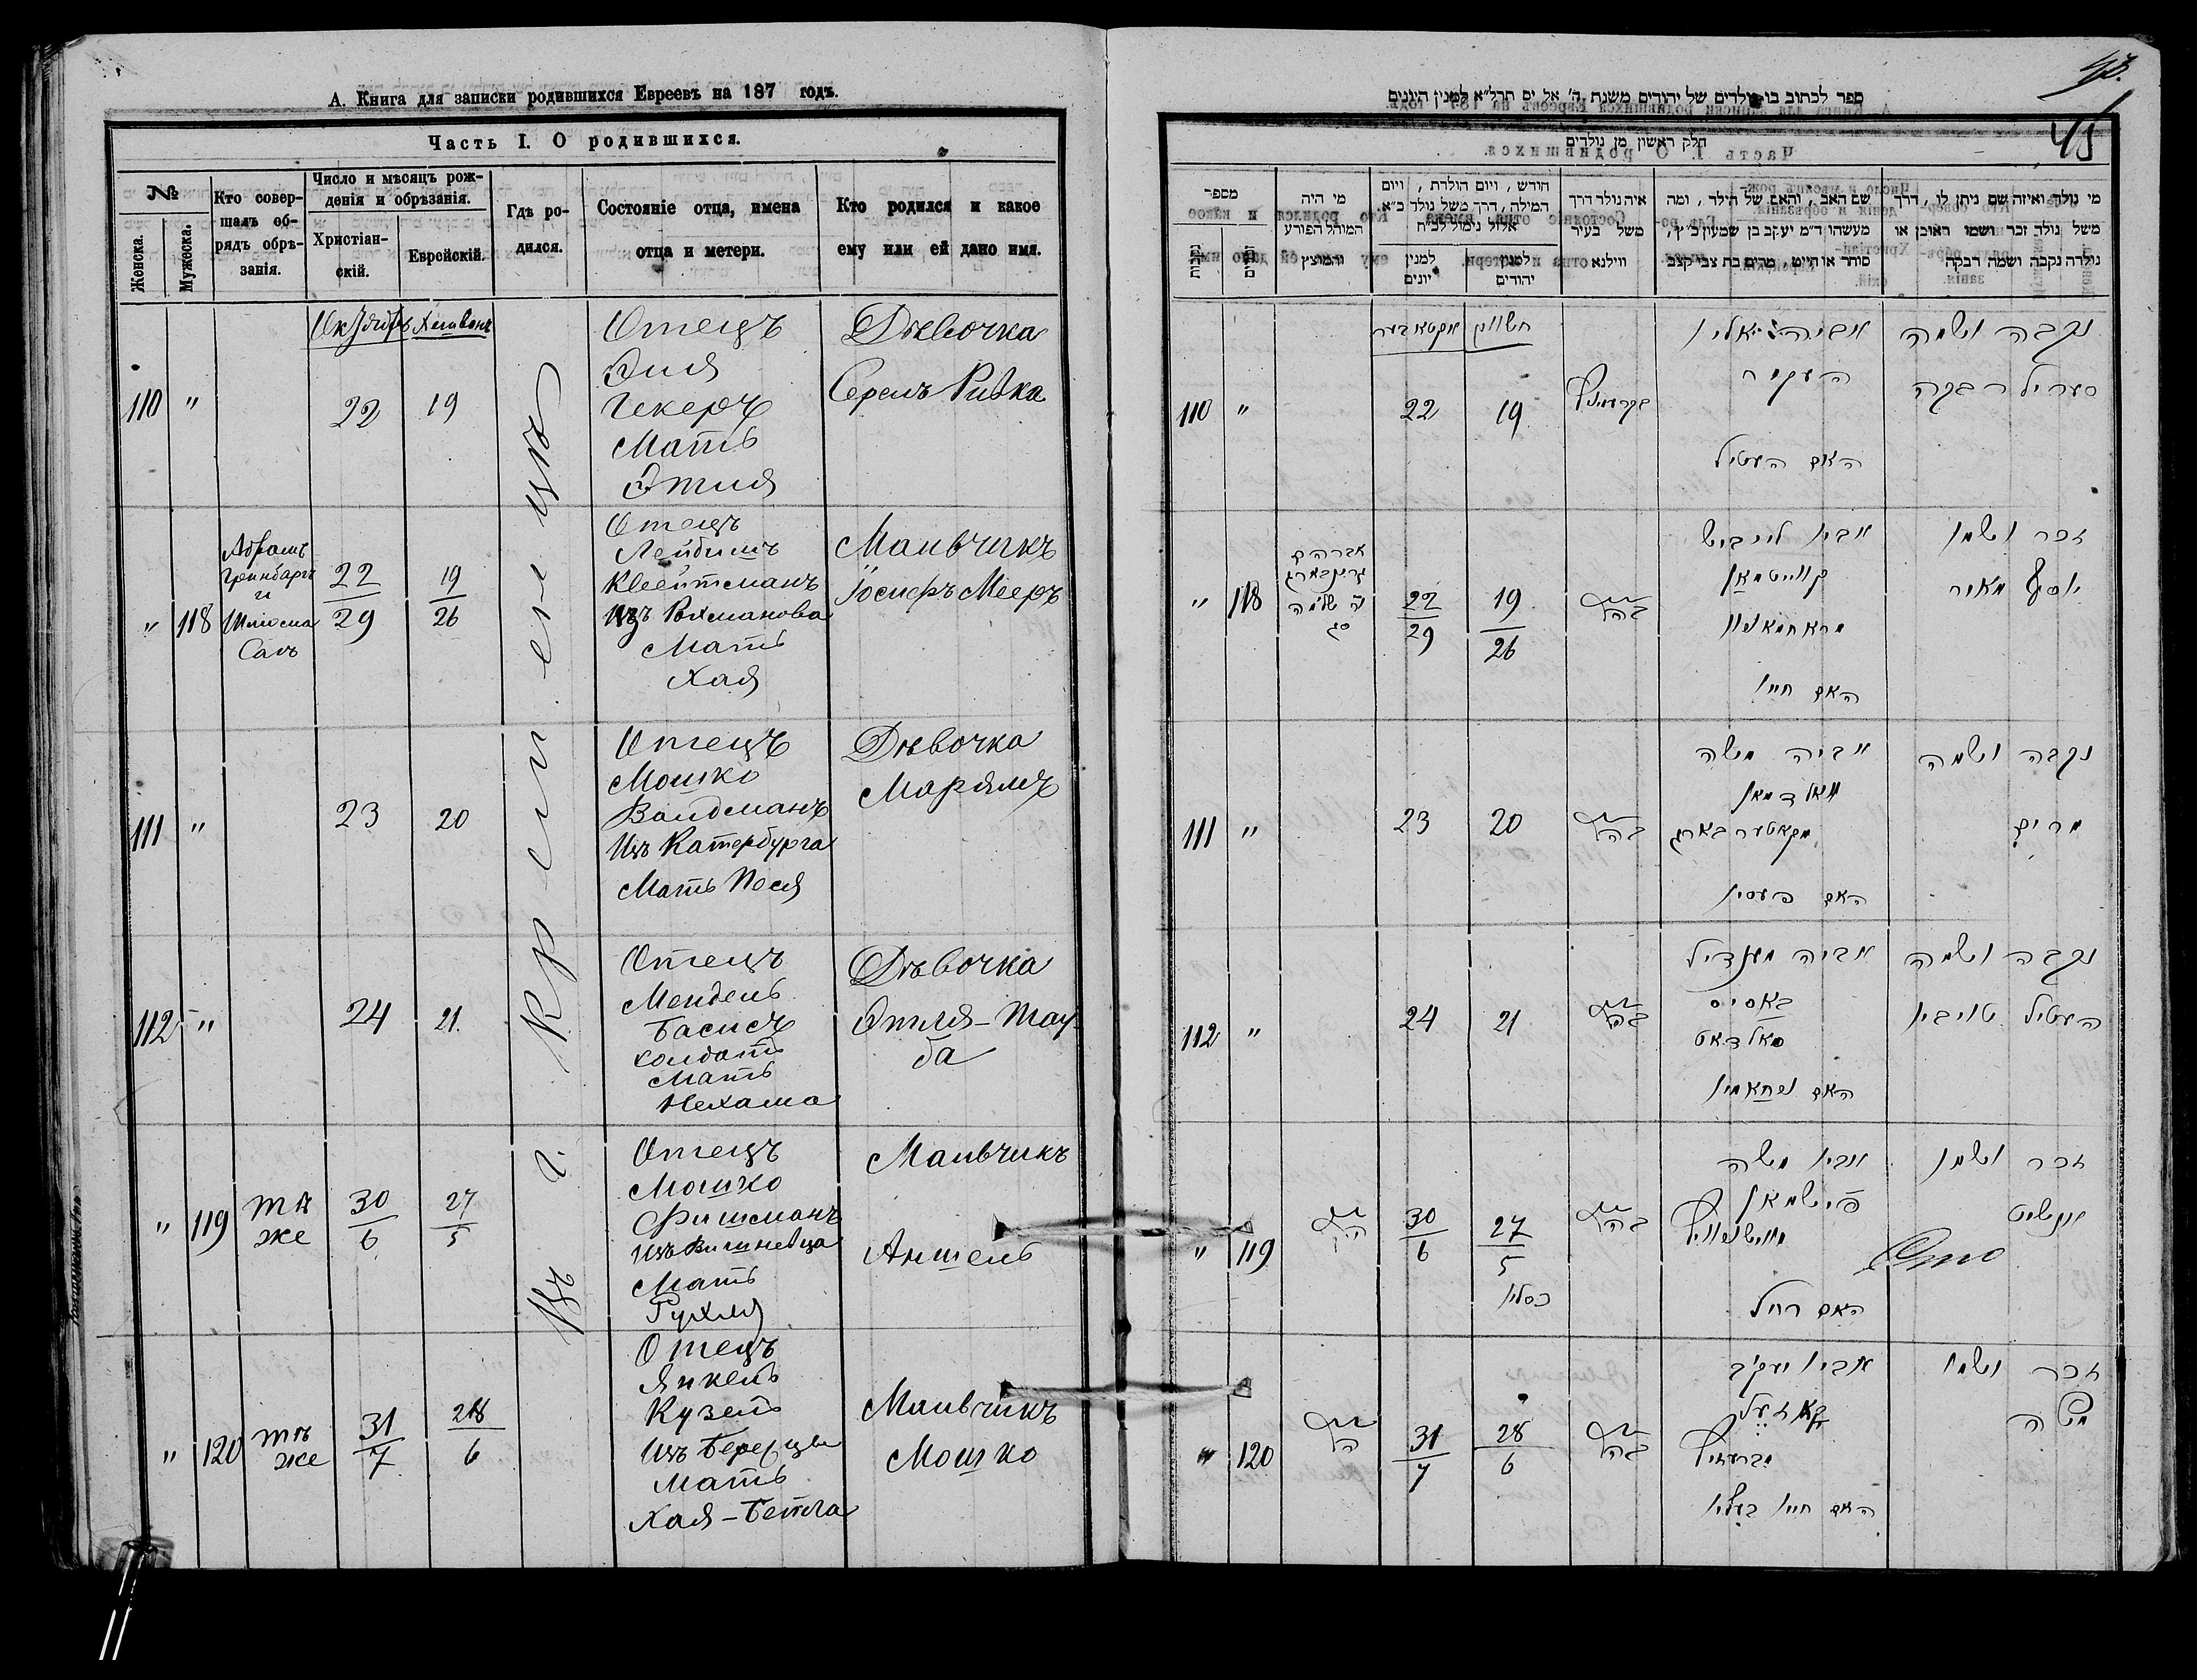 А. Книга для записки родившихся Евреевъ на 187 годъ.
Часть I. О родившихся.
№
Женска.
Мужеска.
Кто совер-
шалъ об-
рядъ обрѣ-
занія.
Число и мѣсяцъ рож-
денія и обрѣзанія.
Христіан-
скій.
Еврейскій.
Гдѣ ро-
дился.
Состояніе отца, имена
отца и метери.
Кто родился и какое
ему или ей дано имя.
Октябрь Хешвонъ
Въ г. Кременецъ
110 " 22 19
Отецъ
Эля
Гекеръ
Мать
Этля
Дѣвочка
Серель Ривка
" 118
Абрамъ
Гринбаргъ
и
Шлиома
Сагъ
22 19
29 26
Отецъ
Лейбишъ
Квейтманъ
Изъ Рахманова
Мать
Хая
Мальчикъ
Іосифъ Мееръ
111 " 23 20
Отецъ
Мошко
Валдманъ
Изъ Катербурга
Мать Песя
Дѣвочка
Марямъ
112 " 24 21.
Отецъ
Мендель
Басисъ
солдатъ
Мать
Нехама
Дѣвочка
Этля-Тау
ба
" 119
тѣ
же
30 27
6 5
Отецъ
Мошко
Фишманъ
изъ Вишневца
Мать
Рухля
Мальчикъ
Аншель
" 120
тѣ
же
31 28
7 6
Отецъ
Янкель
Кузель
изъ Березцы
Мать
Хая-Бейла
Мальчикъ
Мошко
43.
45
ספר לכתוב בו נולדים של יהודים משנת ה' אל יס תרל״א למנין היונים
חלק ראשון מן נולדים
מספר
נקבות
זכרים
מי היה
המוהל הפורע
והמוצץ
חודש, ויום הולדת, ויום
המילה, דרך משל נולד כ״א.
אלול נימול לכ״ח
למנין
יונים
למנין
יהודים
איה נולד דרך
משל בעיר
ווילנא
שם האב, והאם של הילד, ומה
מעשהו ד״מ יעקב בן שמעון כ״ץ,
סוחר או חייט, מרים בת צבי קצב
מי נולד ואיזה שם ניתן לו, דרך
משל נולד זכר ושמו ראובן או
נולדה נקבה ושמה רבקה
אקטאבער חשוון
110 " 22 19
בקרעמניץ
אביה אליו
העקיר
האם העטיל
נקבה ושמה
סעריל רבקה
" 118
אברהם
גרינבארג
ור' שלמה
סג
22 19
29 26
אביו לייביש
קווייטמאן
מראחמאנוו
האם חייו
זכר ושמו
יוסף מאיר
111 " 23 20
אביה משה
וואלדמאן
מקאטערבארג
האם פעסיו
נקבה ושמה
מרים
112 " 24 21
אביה מענדיל
באסיס
סאלדאט
האם נחאמיו
נקבה ושמה
העטיל טויבו
" 119
30 27
6 5
כסליו
אביו משה
פישמאן
מווישניוויץ
האם רחיל
זכר ושמו
אנשיל
Это
" 120
31 28
7 6
אביו יעקב
קוזעל
מברעזיץ
האם חייו ביילו
זכר ושמו
משה